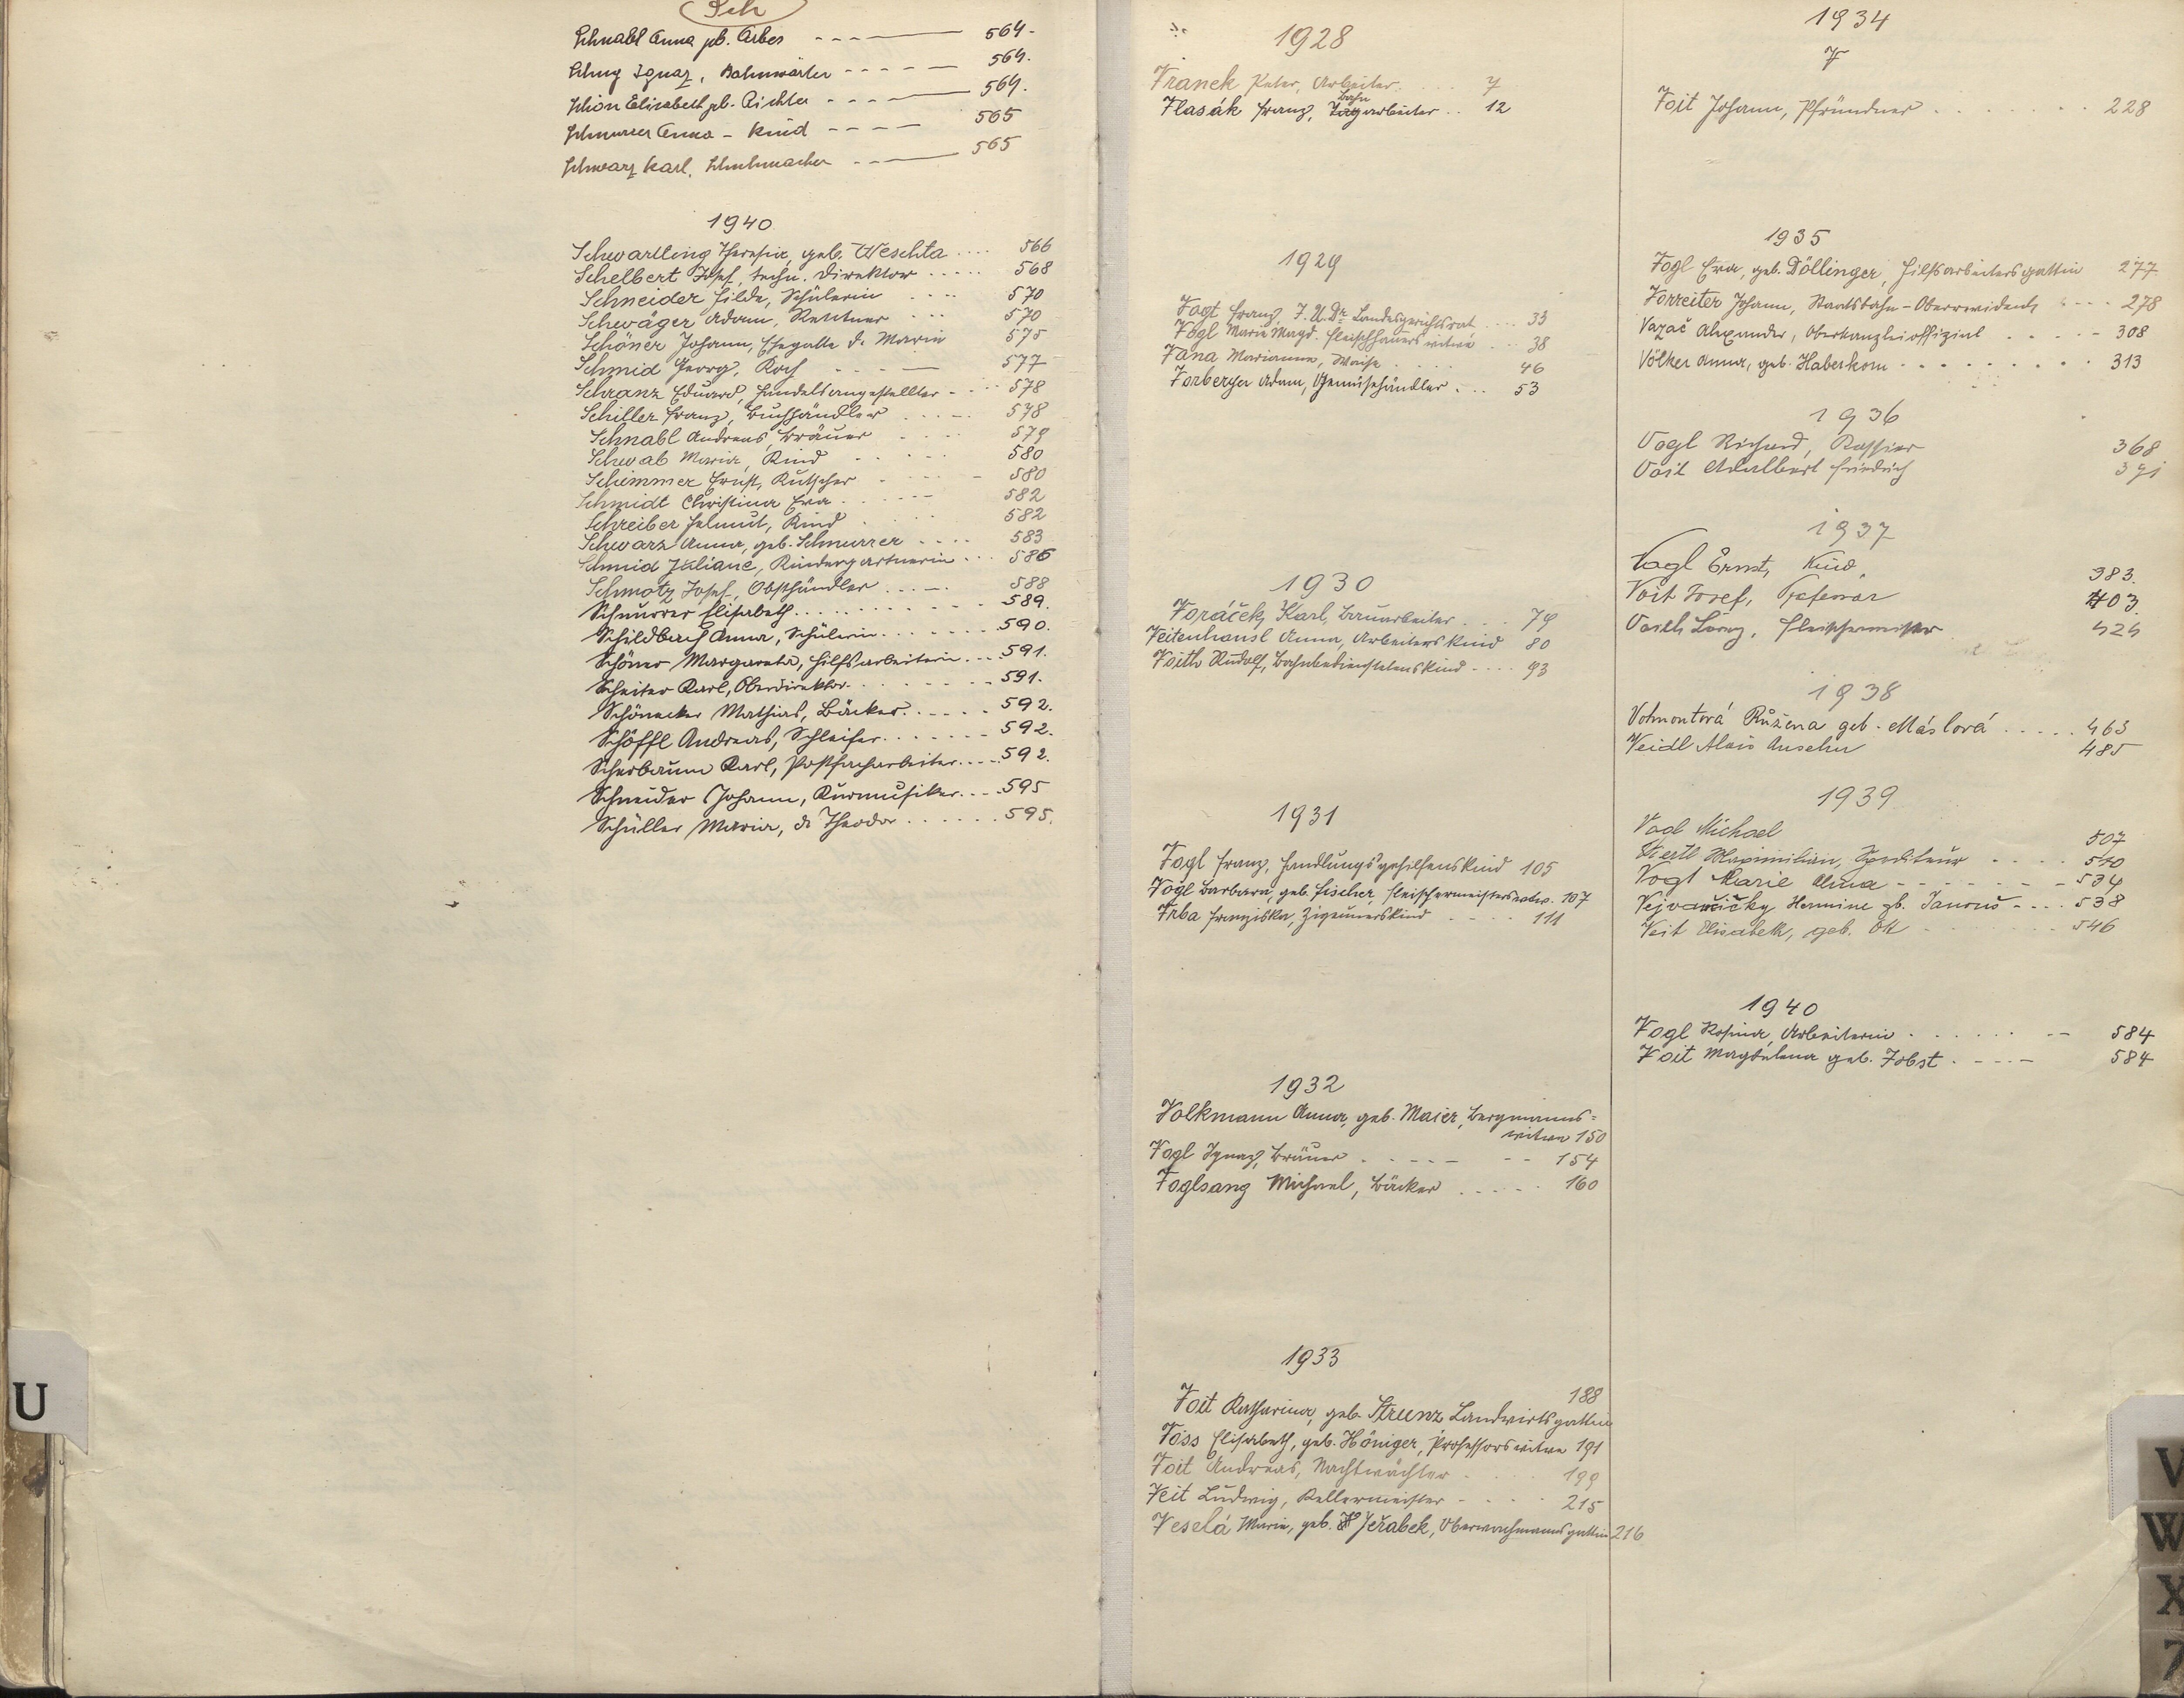 Sch
Schnabl Anna gb. Arbes 564.
Schug Ignaz, Bahnwärter 564.
Schön Elisabeth gb. Richter 564.
Schnurrer Anna - Kind 565
Schwarz Karl, Schuhmacher 565
1940
Schwartling Theresia, geb. Weschta 566
Schelbert Josef, techn. Direktor 568
Schneider Hilde, Schülerin 570
Schwäger Adam, Rentner 570
Schöner Johann, Ehegatte d. Maria 575
Schmid Georg, Koch 577
Schranz Eduard, Handelsangestellter 578
Schiller Franz, Buchhändler 578
Schnabl Andreas, Bräuer 579
Schwab Maria, Kind 580
Schimmer Ernst, Kutscher 580
Schmidt Christina Eva 582
Schreiber Helmut, Kind 582
Schwarz Anna, geb. Schnurrer 583
Schmid Juliane, Kindergartnerin 586
Schmotz Josef, Obsthändler 588
Schnurrer Elisabeth 589.
Schildbach Anna, Schülerin 590.
Schöner Margareta, Hilfsarbeiterin 591.
Scheiter Karl, Oberdirektor 591.
Schönecker Mathias, Bäcker 592.
Schöffl Andreas, Schleifer 592.
Scherbaum Karl, Postfacharbeiter 592.
Schneider Johann, Kurmusiker 595
Schüller Maria, d. Theodor 595.
U
1928
Vranek Peter, Arbeiter 7
Vlasák Franz, Bahn
Tagarbeiter 12
1929
Vogt Franz, J.U.Dr. Landesgerichtsrat 33
Vogl Marie Magd. Fleischhauerswitwe 38
Vana Marianne, Waise 46
Vorberger Adam, Gemüsehändler 53
1930
Voráček Karl, Bauarbeiter 79
Veitenhansl Anna, Arbeiterskind 80
Voith Rudolf, Bahnbedienstetenskind 93
1931
Vogl Franz, Handlungsgehilfenskind 105
Vogl Barbara, geb. Fischer, Fleischermeisterswtw. 107
Vrba Franziska, Zigeunerskind 111
1932
Volkmann Anna, geb. Maier, Bergmanns=
witwe 150
Vogl Ignaz, Bräuer 154
Voglsang Michael, Bäcker 160
1933
188
Voit Katharina, geb. Strunz Landwirtsgattin
Voss Elisabeth, geb. Höniger, Professorswitwe 191
Voit Andreas, Nachtwächter 199
Veit Ludwig, Kellermeister 215
Veselá Marie, geb. Jeřabek, Oberwachmannsgattin 216
1934
V
Voit Johann, Pfründner 228
1935
Vogl Eva, geb. Döllinger, Hilfsarbeitersgattin 277
Vorreiter Johann, Staatsbahn-Oberrevident 278
Vazač Alexander, Oberkanzleioffizial 308
Völker Anna, geb. Haberkorn 313
1936
Vogl Richard, Kassier 368
Voit Adalbert Friedrich 391
1937
Vogl Ernst, Kind 383.
Voit Josef, Professor 403
Voith Lorenz, Fleischermeister 424
1938
Votmontová Růžena geb. Máslová 463
Veidl Alois Anselm 485
1939
Vogl Michael 507
Viertl Maximilian, Spediteur 510
Vogl Marie Anna 534
Hermine gb. Janouš 538
Veit Elisabeth, geb. Ott 546
1940
Vogl Rosina, Arbeiterin 584
Voit Magdalena geb. Jobst 584
V
W
X
Z